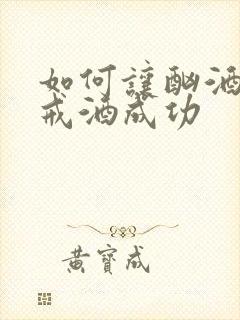 如何讓酗酒
戒酒成功
黃寶成